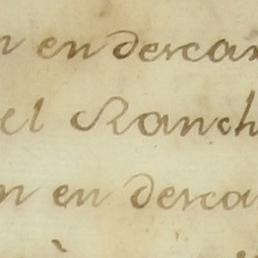 n en descan
el Ranch
n en desca